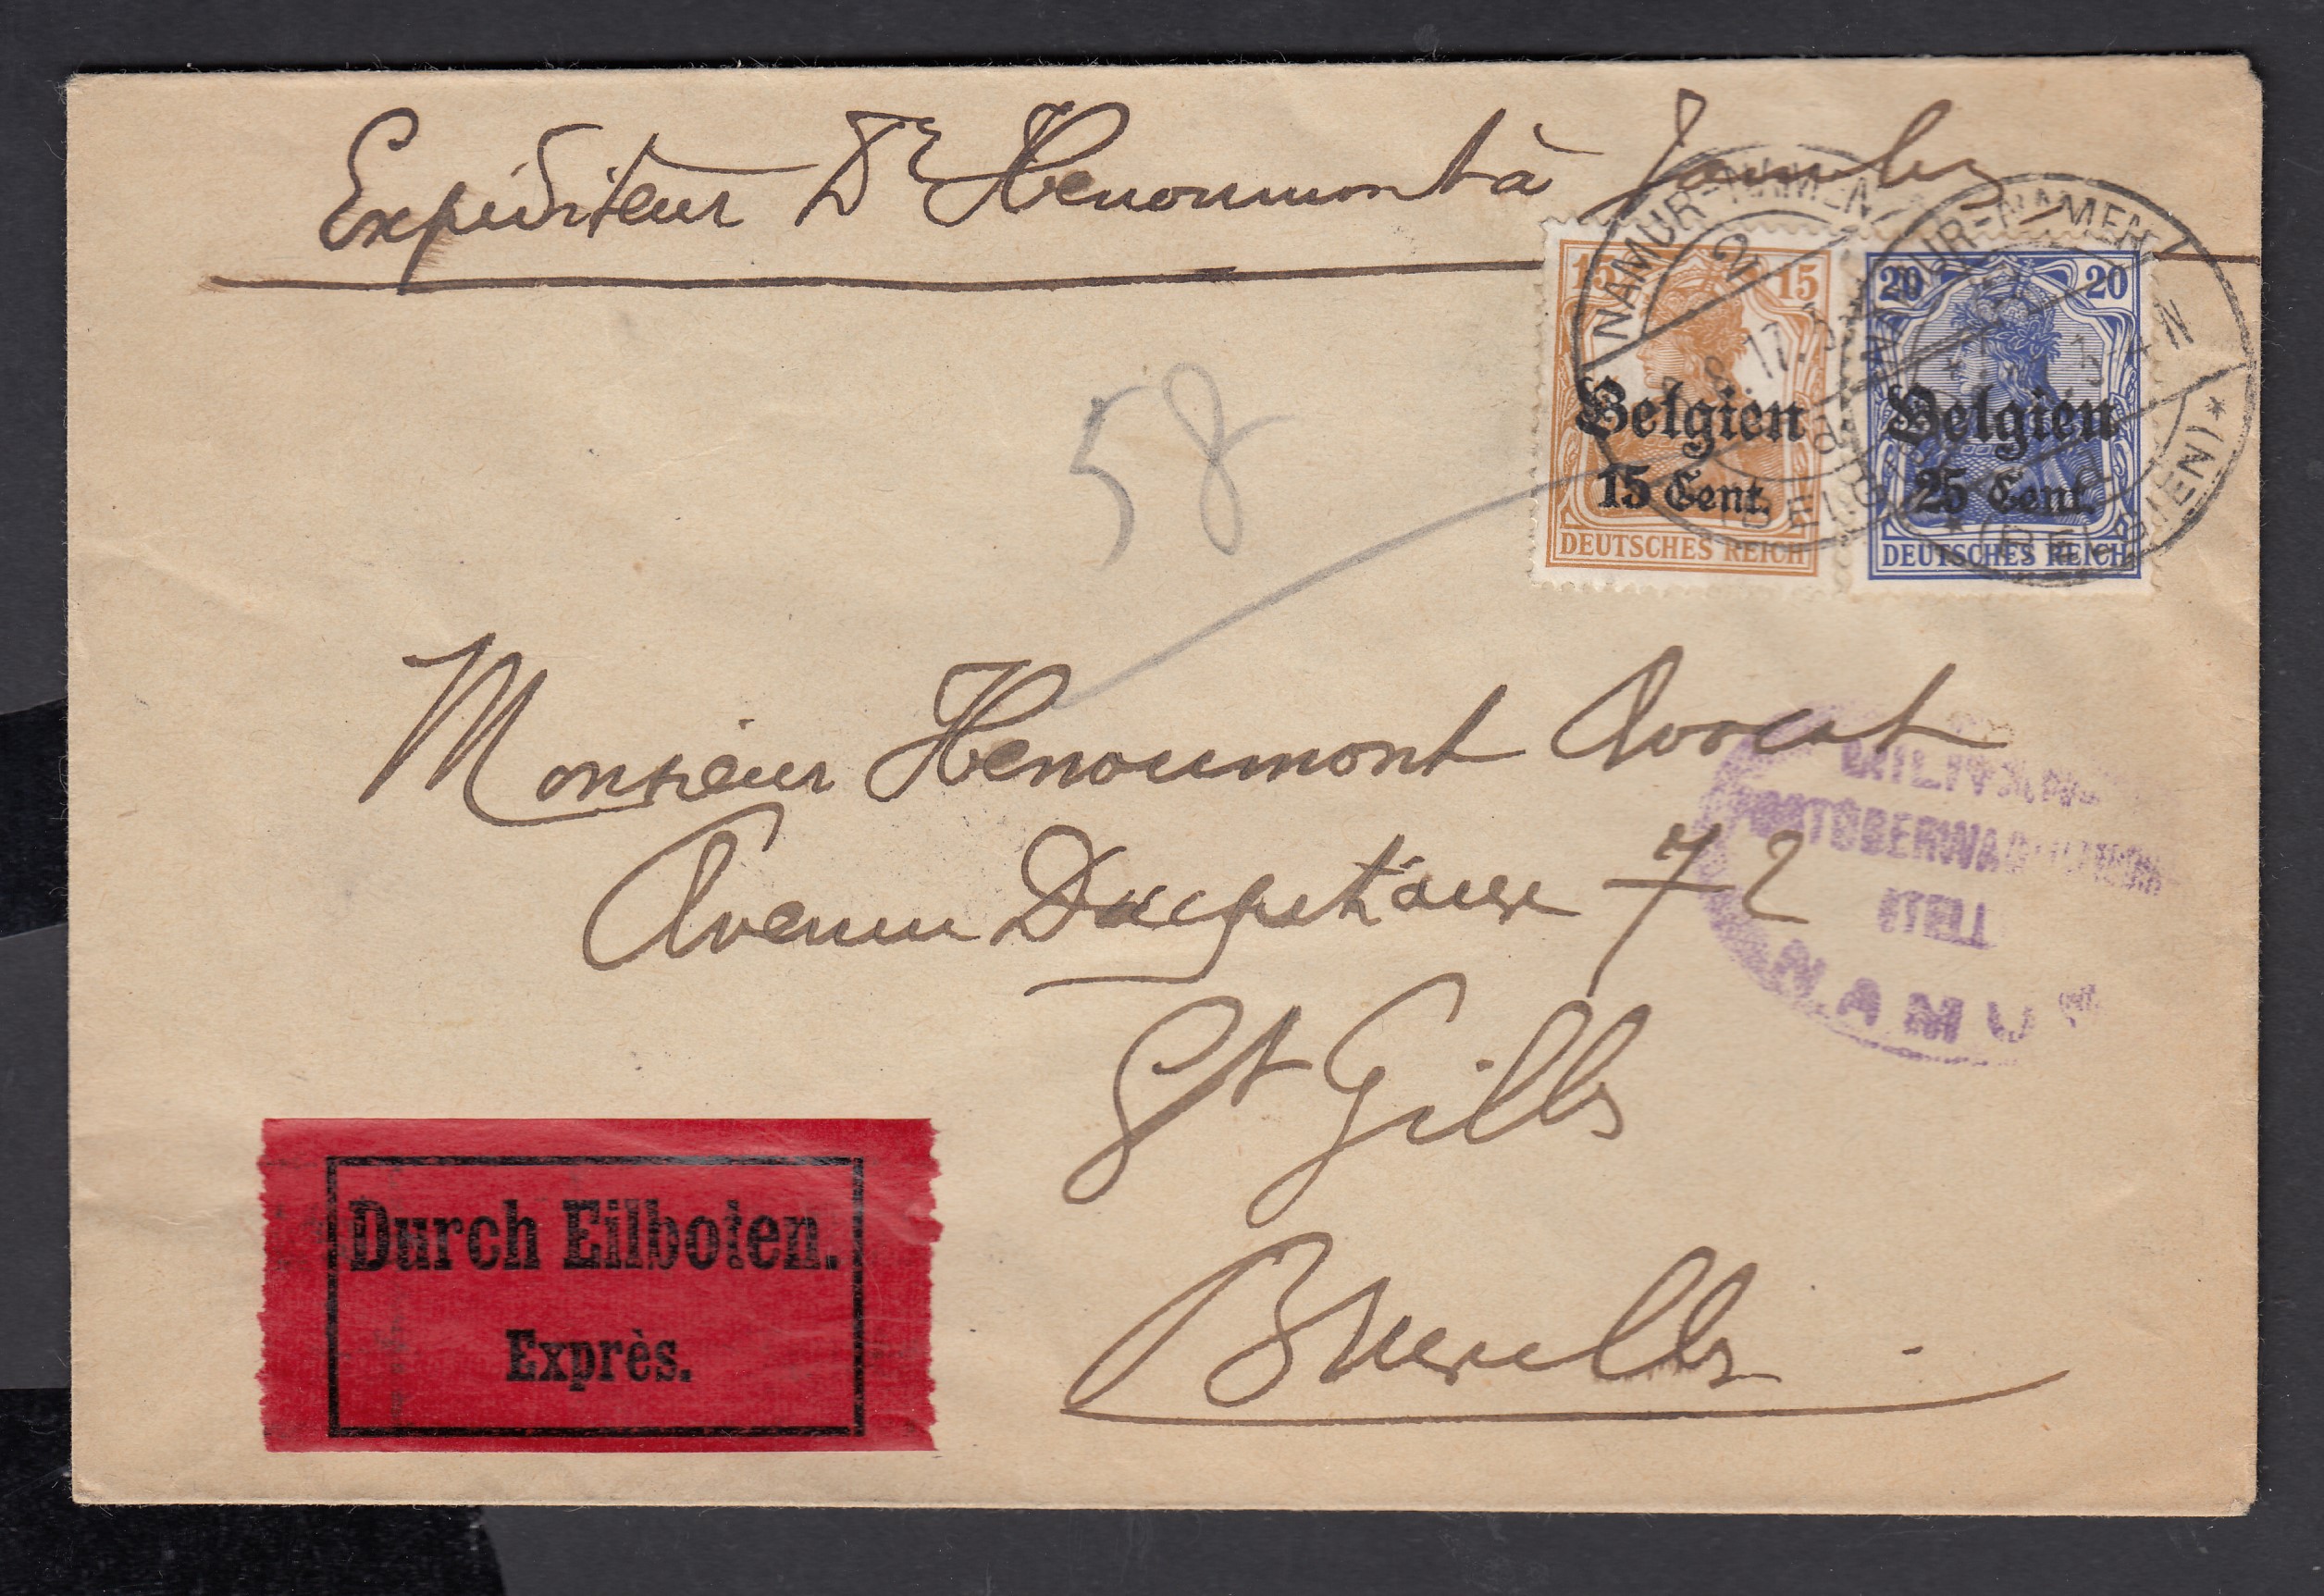 Expéditeur Dr Henoumont à Jambes
NAMUR-NAMEN
NAMUR-NAMEN
15 15
20 20
Belgien
15 Cent.
Belgien
25 Cent.
DEUTSCHES REICH
DEUTSCHES REICH
(BELGIEN)
58
Monsieur Henoumont Avocat
Avenue Ducpétiaux 72
St Gilles
Bruxelles
NAMUR
Durch Eilboten.
Exprès.